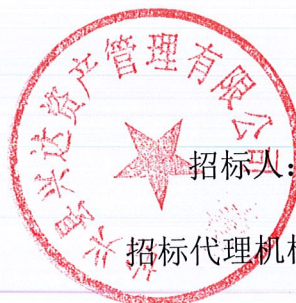 兴县兴达资产管理有限公司
招标人：
招标代理机构